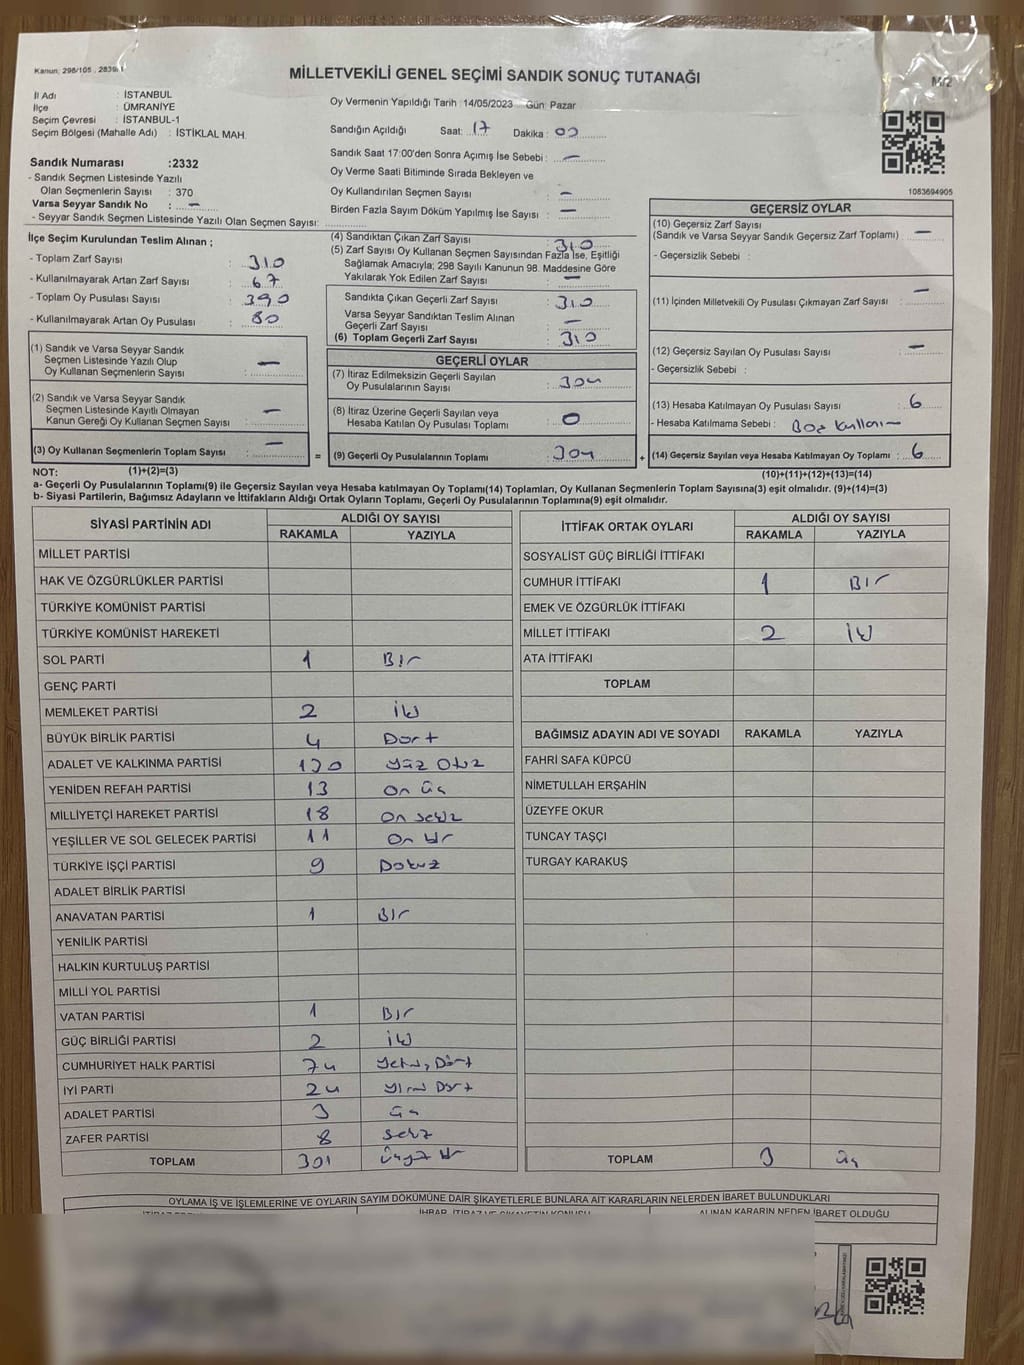 Kanun: 298/105 , 2839/
MİLLETVEKİLİ GENEL SEÇİMİ SANDIK SONUÇ TUTANAĞI
İl Adı : İSTANBUL
İlçe : ÜMRANİYE
Seçim Çevresi : İSTANBUL-1
Seçim Bölgesi (Mahalle Adı) : İSTİKLAL MAH.
Sandık Numarası :2332
- Sandık Seçmen Listesinde Yazılı
Olan Seçmenlerin Sayısı : 370
Varsa Seyyar Sandık No : –
- Seyyar Sandık Seçmen Listesinde Yazılı Olan Seçmen Sayısı:
Oy Vermenin Yapıldığı Tarih :14/05/2023 Gün: Pazar
Sandığın Açıldığı Saat: 17 Dakika: 00
Sandık Saat 17:00'den Sonra Açımış İse Sebebi : –
Oy Verme Saati Bitiminde Sırada Bekleyen ve
Oy Kullandırılan Seçmen Sayısı : –
Birden Fazla Sayım Döküm Yapılmış İse Sayısı : –
1083694905
İlçe Seçim Kurulundan Teslim Alınan ;
- Toplam Zarf Sayısı : 310
- Kullanılmayarak Artan Zarf Sayısı : 67
- Toplam Oy Pusulası Sayısı : 390
- Kullanılmayarak Artan Oy Pusulası : 80
(1) Sandık ve Varsa Seyyar Sandık
Seçmen Listesinde Yazılı Olup
Oy Kullanan Seçmenlerin Sayısı : –
(2) Sandık ve Varsa Seyyar Sandık
Seçmen Listesinde Kayıtlı Olmayan
Kanun Gereği Oy Kullanan Seçmen Sayısı : –
(3) Oy Kullanan Seçmenlerin Toplam Sayısı : –
(1)+(2)=(3)
(4) Sandıktan Çıkan Zarf Sayısı : 310
(5) Zarf Sayısı Oy Kullanan Seçmen Sayısından Fazla İse, Eşitliği
Sağlamak Amacıyla; 298 Sayılı Kanunun 98. Maddesine Göre
Yakılarak Yok Edilen Zarf Sayısı : –
Sandıkta Çıkan Geçerli Zarf Sayısı : 310
Varsa Seyyar Sandıktan Teslim Alınan
Geçerli Zarf Sayısı : –
(6) Toplam Geçerli Zarf Sayısı : 310
GEÇERLİ OYLAR
(7) İtiraz Edilmeksizin Geçerli Sayılan
Oy Pusulalarının Sayısı : 304
(8) İtiraz Üzerine Geçerli Sayılan veya
Hesaba Katılan Oy Pusulası Toplamı : 0
= (9) Geçerli Oy Pusulalarının Toplamı : 304 +
GEÇERSİZ OYLAR
(10) Geçersiz Zarf Sayısı
(Sandık ve Varsa Seyyar Sandık Geçersiz Zarf Toplamı) –
- Geçersizlik Sebebi :
(11) İçinden Milletvekili Oy Pusulası Çıkmayan Zarf Sayısı : –
(12) Geçersiz Sayılan Oy Pusulası Sayısı : –
- Geçersizlik Sebebi :
(13) Hesaba Katılmayan Oy Pusulası Sayısı : 6
- Hesaba Katılmama Sebebi : Boş kullanım
(14) Geçersiz Sayılan veya Hesaba Katılmayan Oy Toplamı : 6
(10)+(11)+(12)+(13)=(14)
NOT:
a- Geçerli Oy Pusulalarının Toplamı(9) ile Geçersiz Sayılan veya Hesaba katılmayan Oy Toplamı(14) Toplamları, Oy Kullanan Seçmenlerin Toplam Sayısına(3) eşit olmalıdır. (9)+(14)=(3)
b- Siyasi Partilerin, Bağımsız Adayların ve İttifakların Aldığı Ortak Oyların Toplamı, Geçerli Oy Pusulalarının Toplamına(9) eşit olmalıdır.
SİYASİ PARTİNİN ADI ALDIĞI OY SAYISI
RAKAMLA YAZIYLA
MİLLET PARTİSİ
HAK VE ÖZGÜRLÜKLER PARTİSİ
TÜRKİYE KOMÜNİST PARTİSİ
TÜRKİYE KOMÜNİST HAREKETİ
SOL PARTİ 1 Bir
GENÇ PARTİ
MEMLEKET PARTİSİ 2 iki
BÜYÜK BİRLİK PARTİSİ 4 Dört
ADALET VE KALKINMA PARTİSİ 130 Yüz Otuz
YENİDEN REFAH PARTİSİ 13 On üç
MİLLİYETÇİ HAREKET PARTİSİ 18 On sekiz
YEŞİLLER VE SOL GELECEK PARTİSİ 11 On bir
TÜRKİYE İŞÇİ PARTİSİ 9 Dokuz
ADALET BİRLİK PARTİSİ
ANAVATAN PARTİSİ 1 Bir
YENİLİK PARTİSİ
HALKIN KURTULUŞ PARTİSİ
MİLLİ YOL PARTİSİ
VATAN PARTİSİ 1 Bir
GÜÇ BİRLİĞİ PARTİSİ 2 iki
CUMHURİYET HALK PARTİSİ 74 Yetmiş Dört
İYİ PARTİ 24 Yirmi Dört
ADALET PARTİSİ 3 üç
ZAFER PARTİSİ 8 sekiz
TOPLAM 301 üçyüz bir
İTTİFAK ORTAK OYLARI ALDIĞI OY SAYISI
RAKAMLA YAZIYLA
SOSYALİST GÜÇ BİRLİĞİ İTTİFAKI
CUMHUR İTTİFAKI 1 Bir
EMEK VE ÖZGÜRLÜK İTTİFAKI
MİLLET İTTİFAKI 2 iki
ATA İTTİFAKI
TOPLAM
BAĞIMSIZ ADAYIN ADI VE SOYADI RAKAMLA YAZIYLA
FAHRİ SAFA KÜPCÜ
NİMETULLAH ERŞAHİN
ÜZEYFE OKUR
TUNCAY TAŞÇI
TURGAY KARAKUŞ
TOPLAM 3 üç
OYLAMA İŞ VE İŞLEMLERİNE VE OYLARIN SAYIM DÖKÜMÜNE DAİR ŞİKAYETLERLE BUNLARA AİT KARARLARIN NELERDEN İBARET BULUNDUKLARI
İHBAR, İTİRAZ VE ŞİKAYETİN KONUSU ALINAN KARARIN NEDEN İBARET OLDUĞU